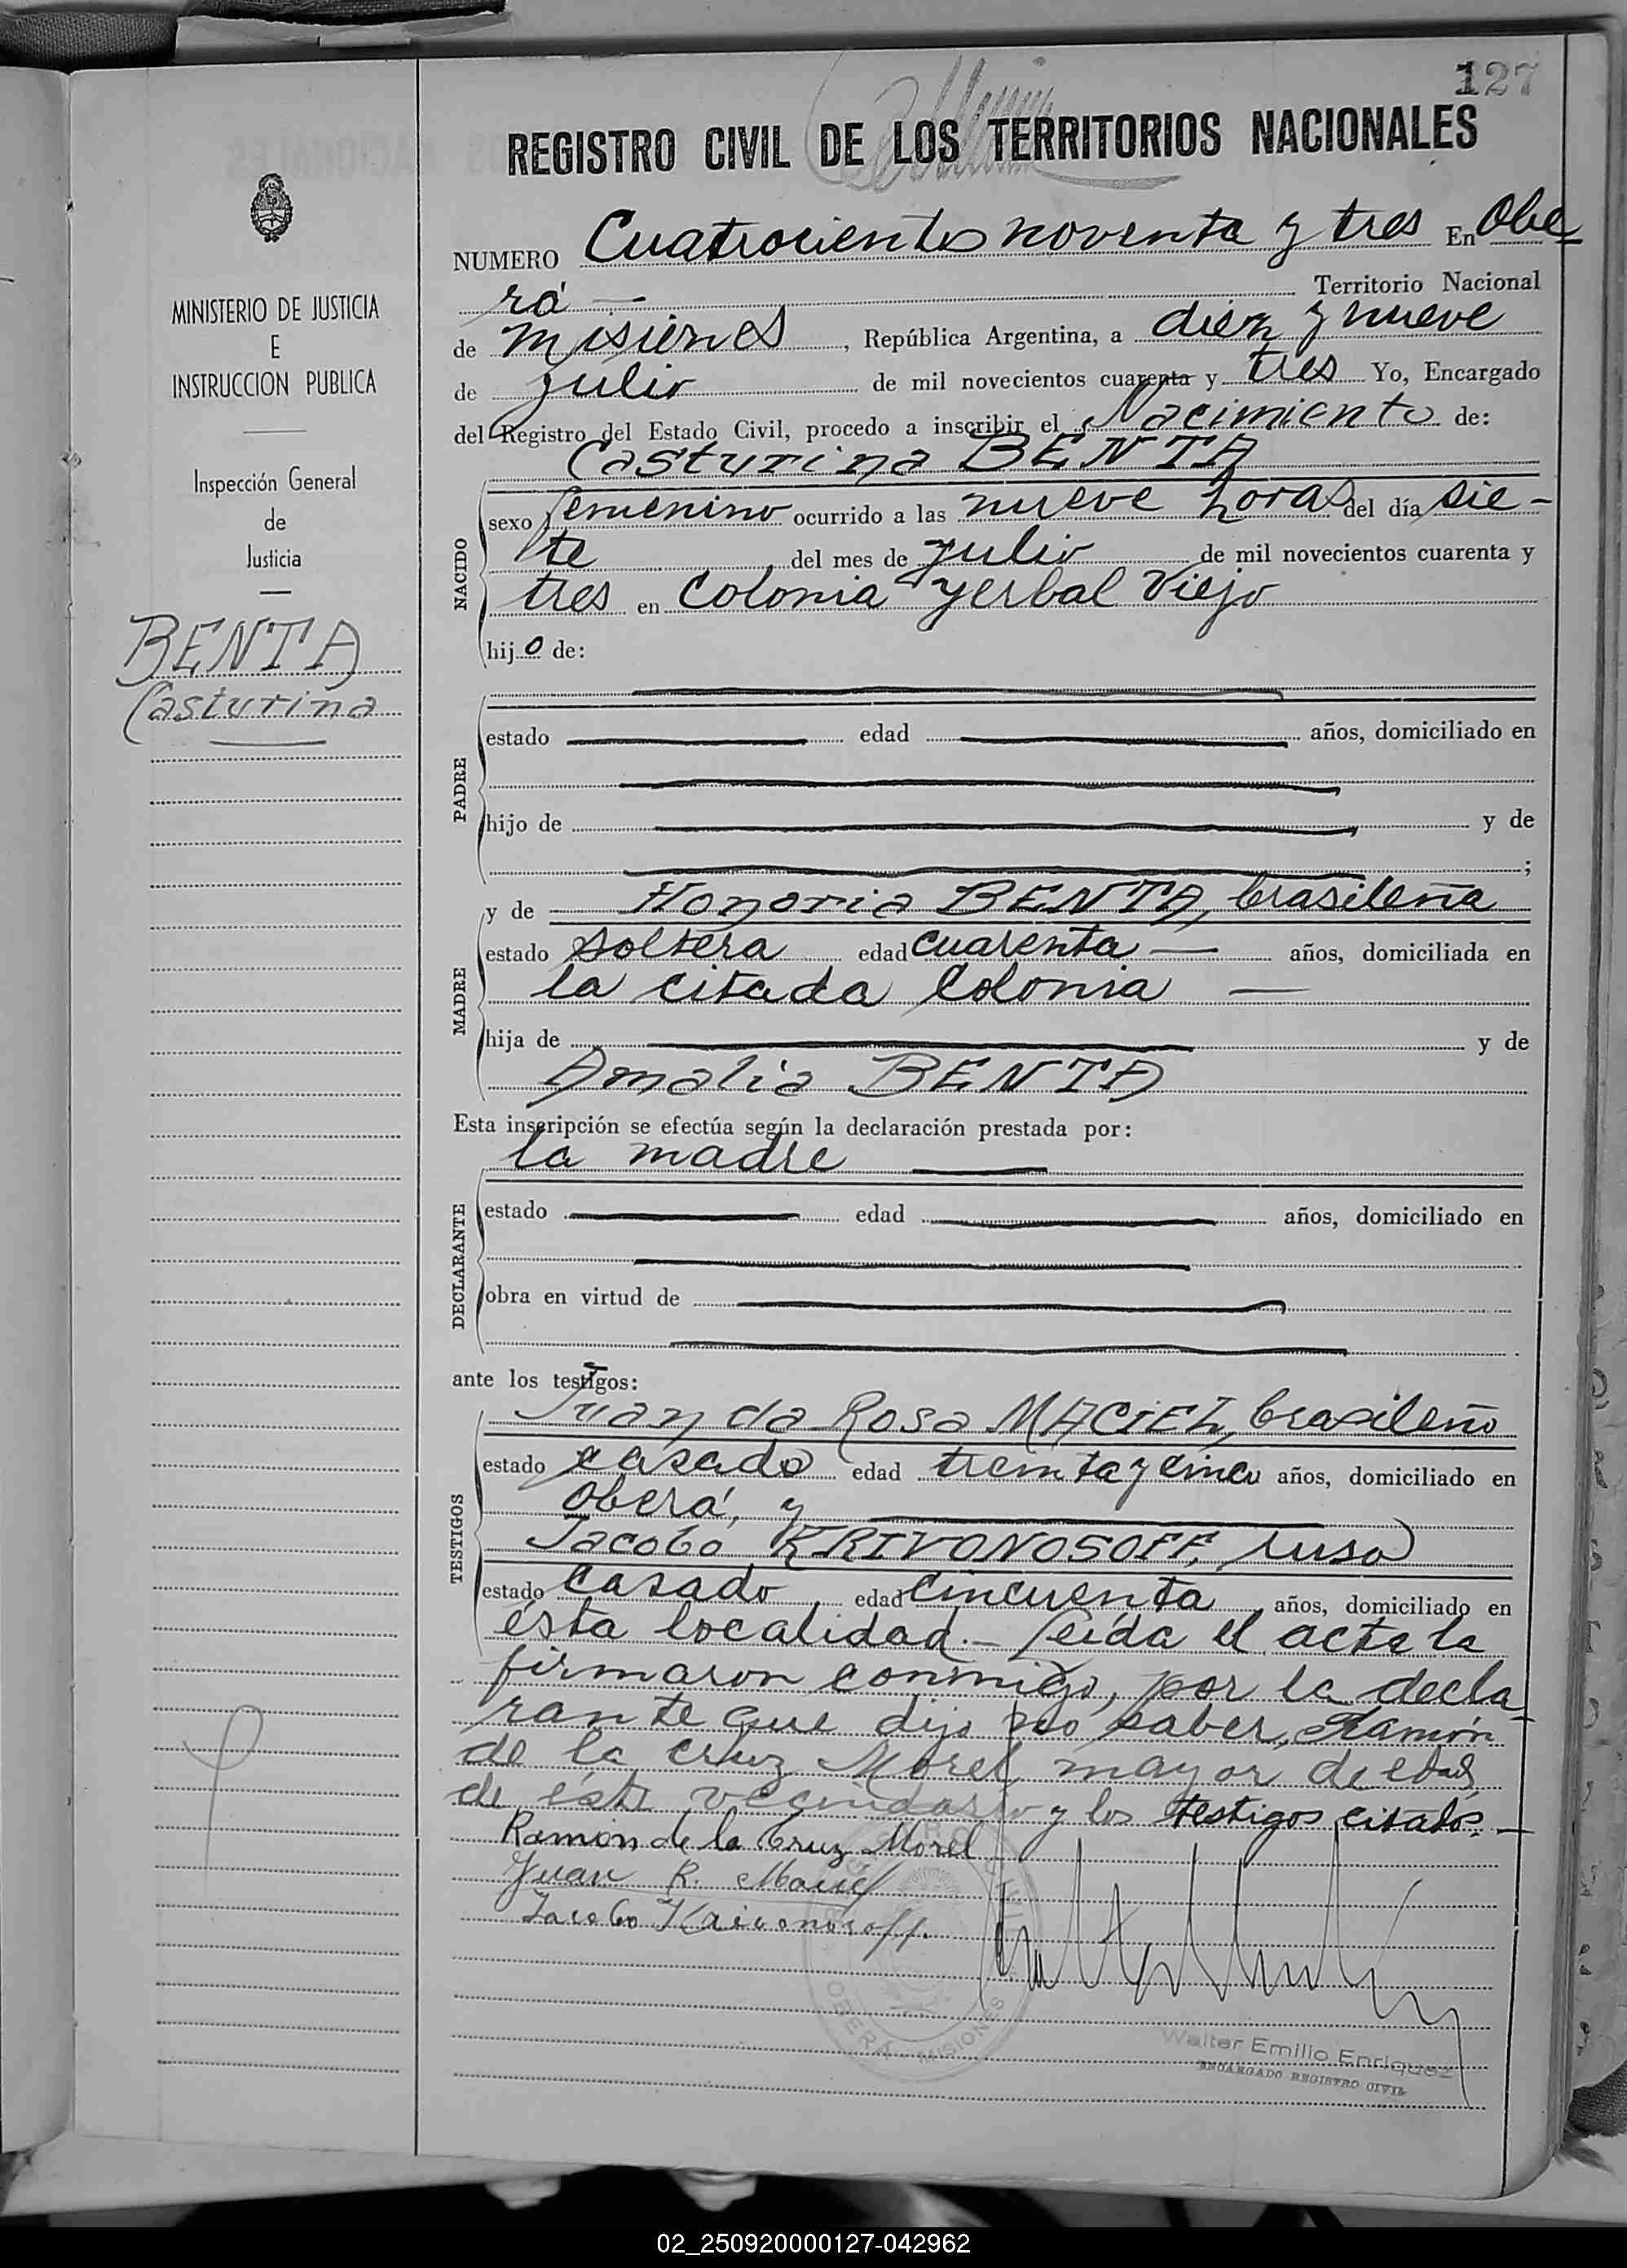 127
REGISTRO CIVIL DE LOS TERRITORIOS NACIONALES
NUMERO Cuatrocientos noventa y tres En Obe-
rá — Territorio Nacional
de Misiones, República Argentina, a diez y nueve
de julio de mil novecientos cuarenta y tres Yo, Encargado
del Registro del Estado Civil, procedo a inscribir el Nacimiento de:
Casturina BENTA
NACIDO
sexo femenino ocurrido a las nueve horas del día sie-
te del mes de julio de mil novecientos cuarenta y
tres en Colonia Yerbal Viejo
hijo de:
PADRE
estado edad años, domiciliado en
hijo de y de
;
y de Honoria BENTA, brasileña
MADRE
estado soltera edad cuarenta — años, domiciliada en
la citada Colonia —
hija de y de
Amalia BENTA
Esta inscripción se efectúa según la declaración prestada por:
la madre —
DECLARANTE
estado edad años, domiciliado en
obra en virtud de
ante los testigos:
TESTIGOS
Juan da Rosa MACIEL, brasileño
estado casado edad treinta y cinco años, domiciliado en
Oberá, y
Jacobo KRIVONOSOFF, ruso
estado casado edad cincuenta años, domiciliado en
ésta localidad.- Leída el acta la
firmaron conmigo, por la decla-
rante que dijo no saber, Ramón
de la Cruz Morel mayor de edad,
de éste vecindario y los testigos citados.—
Ramón de la Cruz Morel
Juan R. Maciel
Jacobo Krivonosoff.
OBERA MISIONES
Walter Emilio Enriquez
ENCARGADO REGISTRO CIVIL
MINISTERIO DE JUSTICIA
E
INSTRUCCION PUBLICA
Inspección General
de
Justicia
BENTA
Casturina
02_250920000127-042962